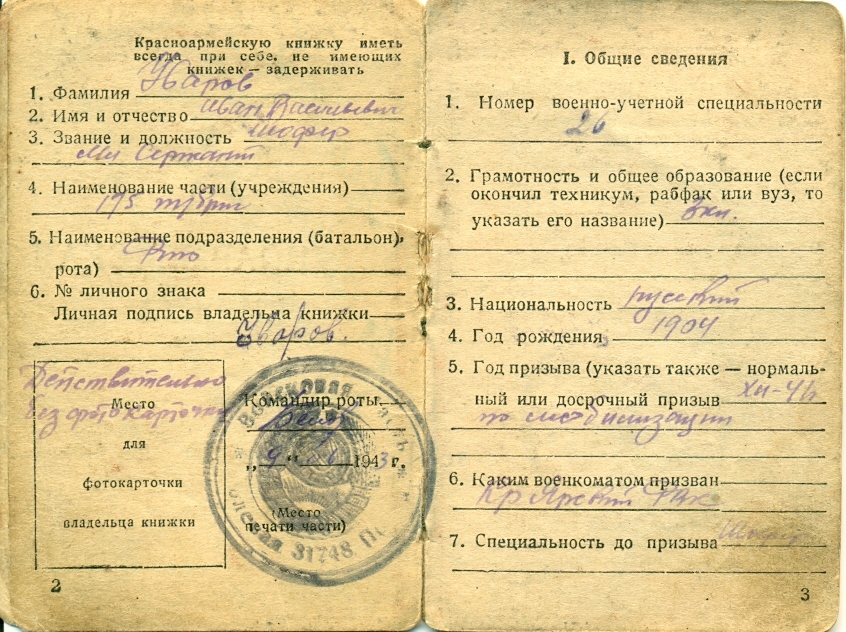 Красноармейскую книжку иметь
всегда при себе, не имеющих
книжек — задерживать
1. Фамилия
2. Имя и отчество Иван Васильевич
3. Звание и должность Шофер
Мл Сержант
4. Наименование части (учреждения)
175
5. Наименование подразделения (батальон,
рота)
6. № личного знака
Личная подпись владельца книжки
Действительно
без фото карточки
Место
для
фотокарточки
владельца книжки
Командир роты
„ 9 “ 1943 г.
(Место
печати части)
ВОЙСКОВАЯ ЧАСТЬ
31748
2
I. Общие сведения
1. Номер военно-учетной специальности
26
2. Грамотность и общее образование (если
окончил техникум, рабфак или вуз, то
указать его название) 3 кл.
3. Национальность русский
4. Год рождения 1904
5. Год призыва (указать также — нормаль-
ный или досрочный призыв
по мобилизации
6. Каким военкоматом призван
Кр Ярский РВК
7. Специальность до призыва шофер
3